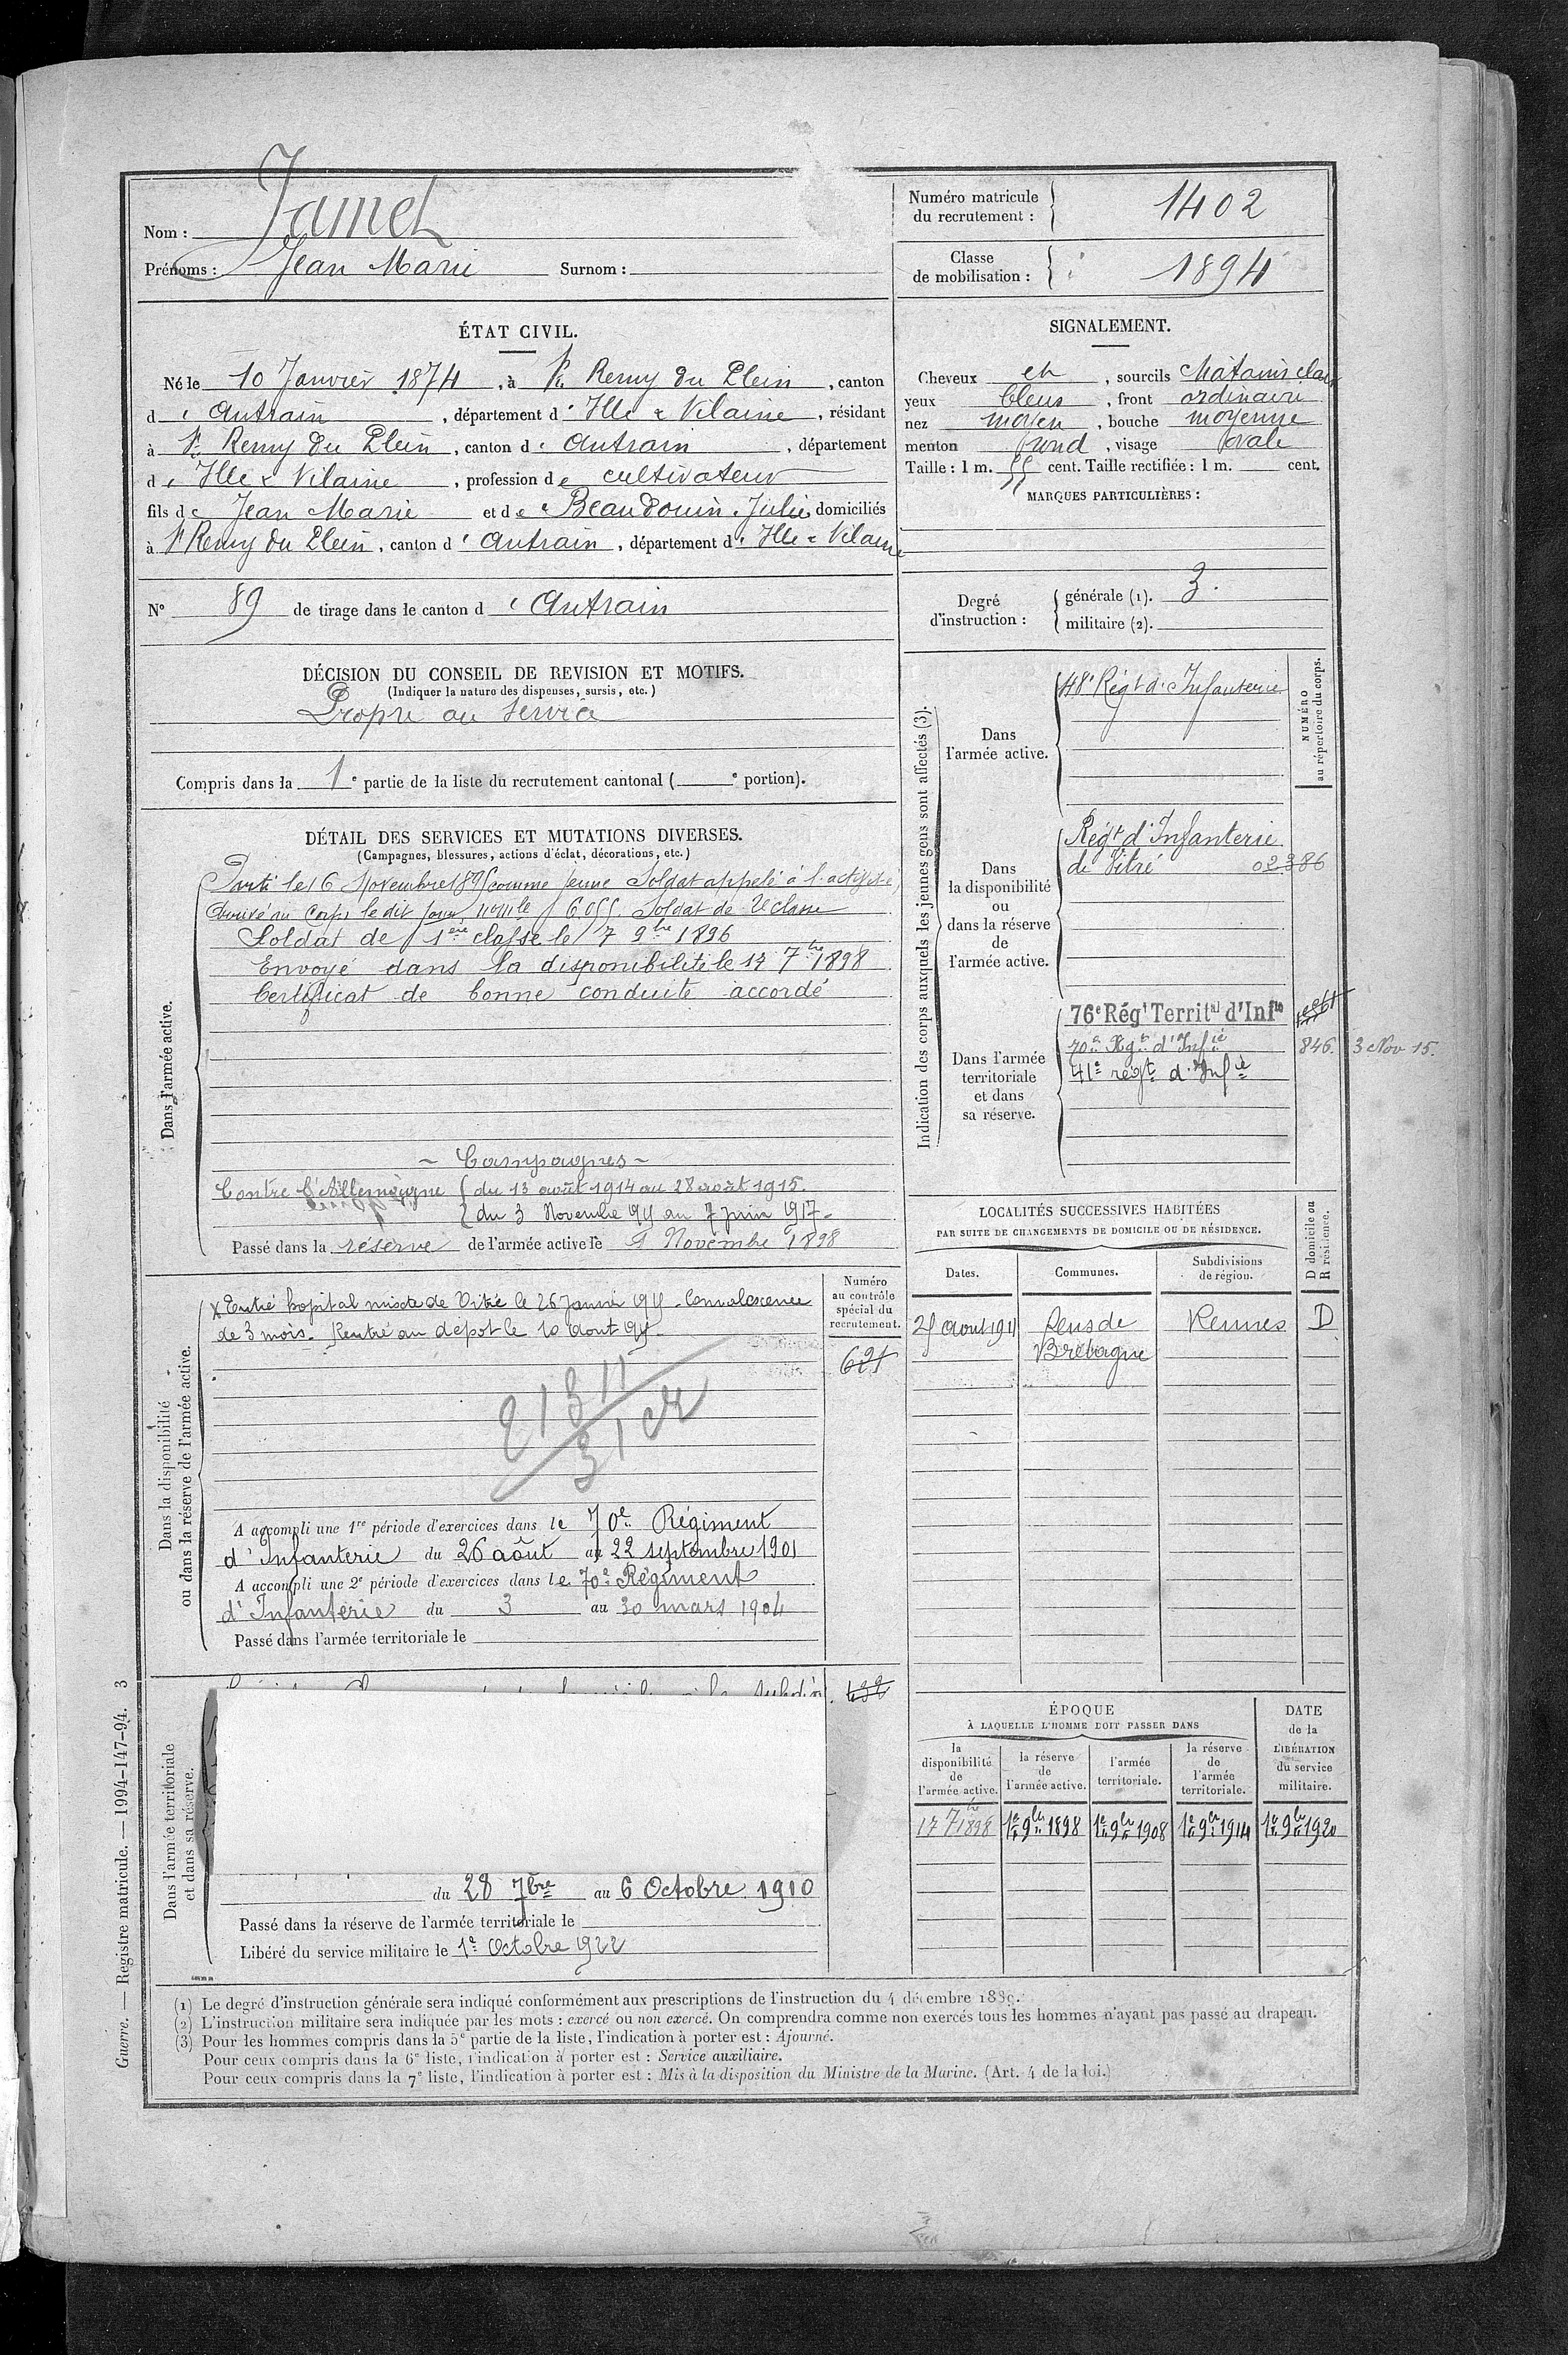 Nom : Jamet
Prénoms : Jean Marie Surnom :
Numéro matricule du recrutement : 1402
Classe de mobilisation : 1894
ÉTAT CIVIL.
Né le 10 Janvier 1874, à St Remy du Plein, canton
d' Antrain, département d' Ille & Vilaine, résidant
à St Remy du Plein, canton d' Antrain, département
d' Ille & Vilaine, profession de cultivateur
fils de Jean Marie et de Beaudouin Julie domiciliés
à St Remy du Plein, canton d' Antrain, département d' Ille & Vilaine
N° 89 de tirage dans le canton d' Antrain
SIGNALEMENT.
Cheveux et, sourcils chatains clairs
yeux bleus, front ordinaire
nez moyen, bouche moyenne
menton rond, visage ovale
Taille : 1 m. 55 cent. Taille rectifiée : 1 m. cent.
MARQUES PARTICULIÈRES :
Degré d'instruction :
générale (1). 3.
militaire (2).
DÉCISION DU CONSEIL DE REVISION ET MOTIFS.
(Indiquer la nature des dispenses, sursis, etc.)
Propre au service
Compris dans la 1e partie de la liste du recrutement cantonal ( e portion).
DÉTAIL DES SERVICES ET MUTATIONS DIVERSES.
(Campagnes, blessures, actions d'éclat, décorations, etc.)
Dans l'armée active.
Parti le 16 Novembre 1895 comme jeune Soldat appelé à l'activité,
Arrivé au Corps le dit jour, nº mle 6055. Soldat de 2e classe
Soldat de 1ère classe le 17 9bre 1896
Envoyé dans la disponibilité le 17 7bre 1898
Certificat de bonne conduite accordé
~ Campagnes ~
Contre l'Allemagne { du 13 août 1914 au 28 août 1915.
{ du 3 Novembre 1915 au 7 juin 1917.
Passé dans la réserve de l'armée active le 1 Novembre 1898
Indication des corps auxquels les jeunes gens sont affectés (3).
NUMÉRO au répertoire du corps.
Dans l'armée active.
48e Régt d'Infanterie
Dans la disponibilité ou dans la réserve de l'armée active.
Régt d'Infanterie
de Vitré 02386
Dans l'armée territoriale et dans sa réserve.
76e Régt Territal d'Infie
70e Rgt d'Infie 846. 3 Nov 15.
41e régt d'Infie
LOCALITÉS SUCCESSIVES HABITÉES
PAR SUITE DE CHANGEMENTS DE DOMICILE OU DE RÉSIDENCE.
Dates. Communes. Subdivisions de région. D domicile ou R résidence.
25 Aout 1911 Rennes D
Bretagne
Dans la disponibilité ou dans la réserve de l'armée active.
Numéro au contrôle spécial du recrutement.
x Entré hopital mixte de Vitré le 26 Janvier 1915. Convalescence
de 3 mois. Rentré au dépot le 10 Aout 1915.
A accompli une 1re période d'exercices dans le 70e Régiment
d'Infanterie du 26 août au 22 septembre 1901
A accompli une 2e période d'exercices dans le 70e Régiment
d'Infanterie du 3 au 30 mars 1904
Passé dans l'armée territoriale le
Dans l'armée territoriale et dans sa réserve.
du 28 7bre au 6 Octobre 1910
Passé dans la réserve de l'armée territoriale le
Libéré du service militaire le 1er Octobre 1922
ÉPOQUE
À LAQUELLE L'HOMME DOIT PASSER DANS
la disponibilité de l'armée active.
la réserve de l'armée active.
l'armée territoriale.
la réserve de l'armée territoriale.
DATE de la LIBÉRATION du service militaire.
17 7bre 1898 1er 9bre 1898 1er 9bre 1908 1er 9bre 1914 1er 9bre 1920
(1) Le degré d'instruction générale sera indiqué conformément aux prescriptions de l'instruction du 4 décembre 1889.
(2) L'instruction militaire sera indiquée par les mots : exercé ou non exercé. On comprendra comme non exercés tous les hommes n'ayant pas passé au drapeau.
(3) Pour les hommes compris dans la 5e partie de la liste, l'indication à porter est : Ajourné.
Pour ceux compris dans la 6e liste, l'indication à porter est : Service auxiliaire.
Pour ceux compris dans la 7e liste, l'indication à porter est : Mis à la disposition du Ministre de la Marine. (Art. 4 de la loi.)
Guerre. — Registre matricule. — 1994-147-94. 3